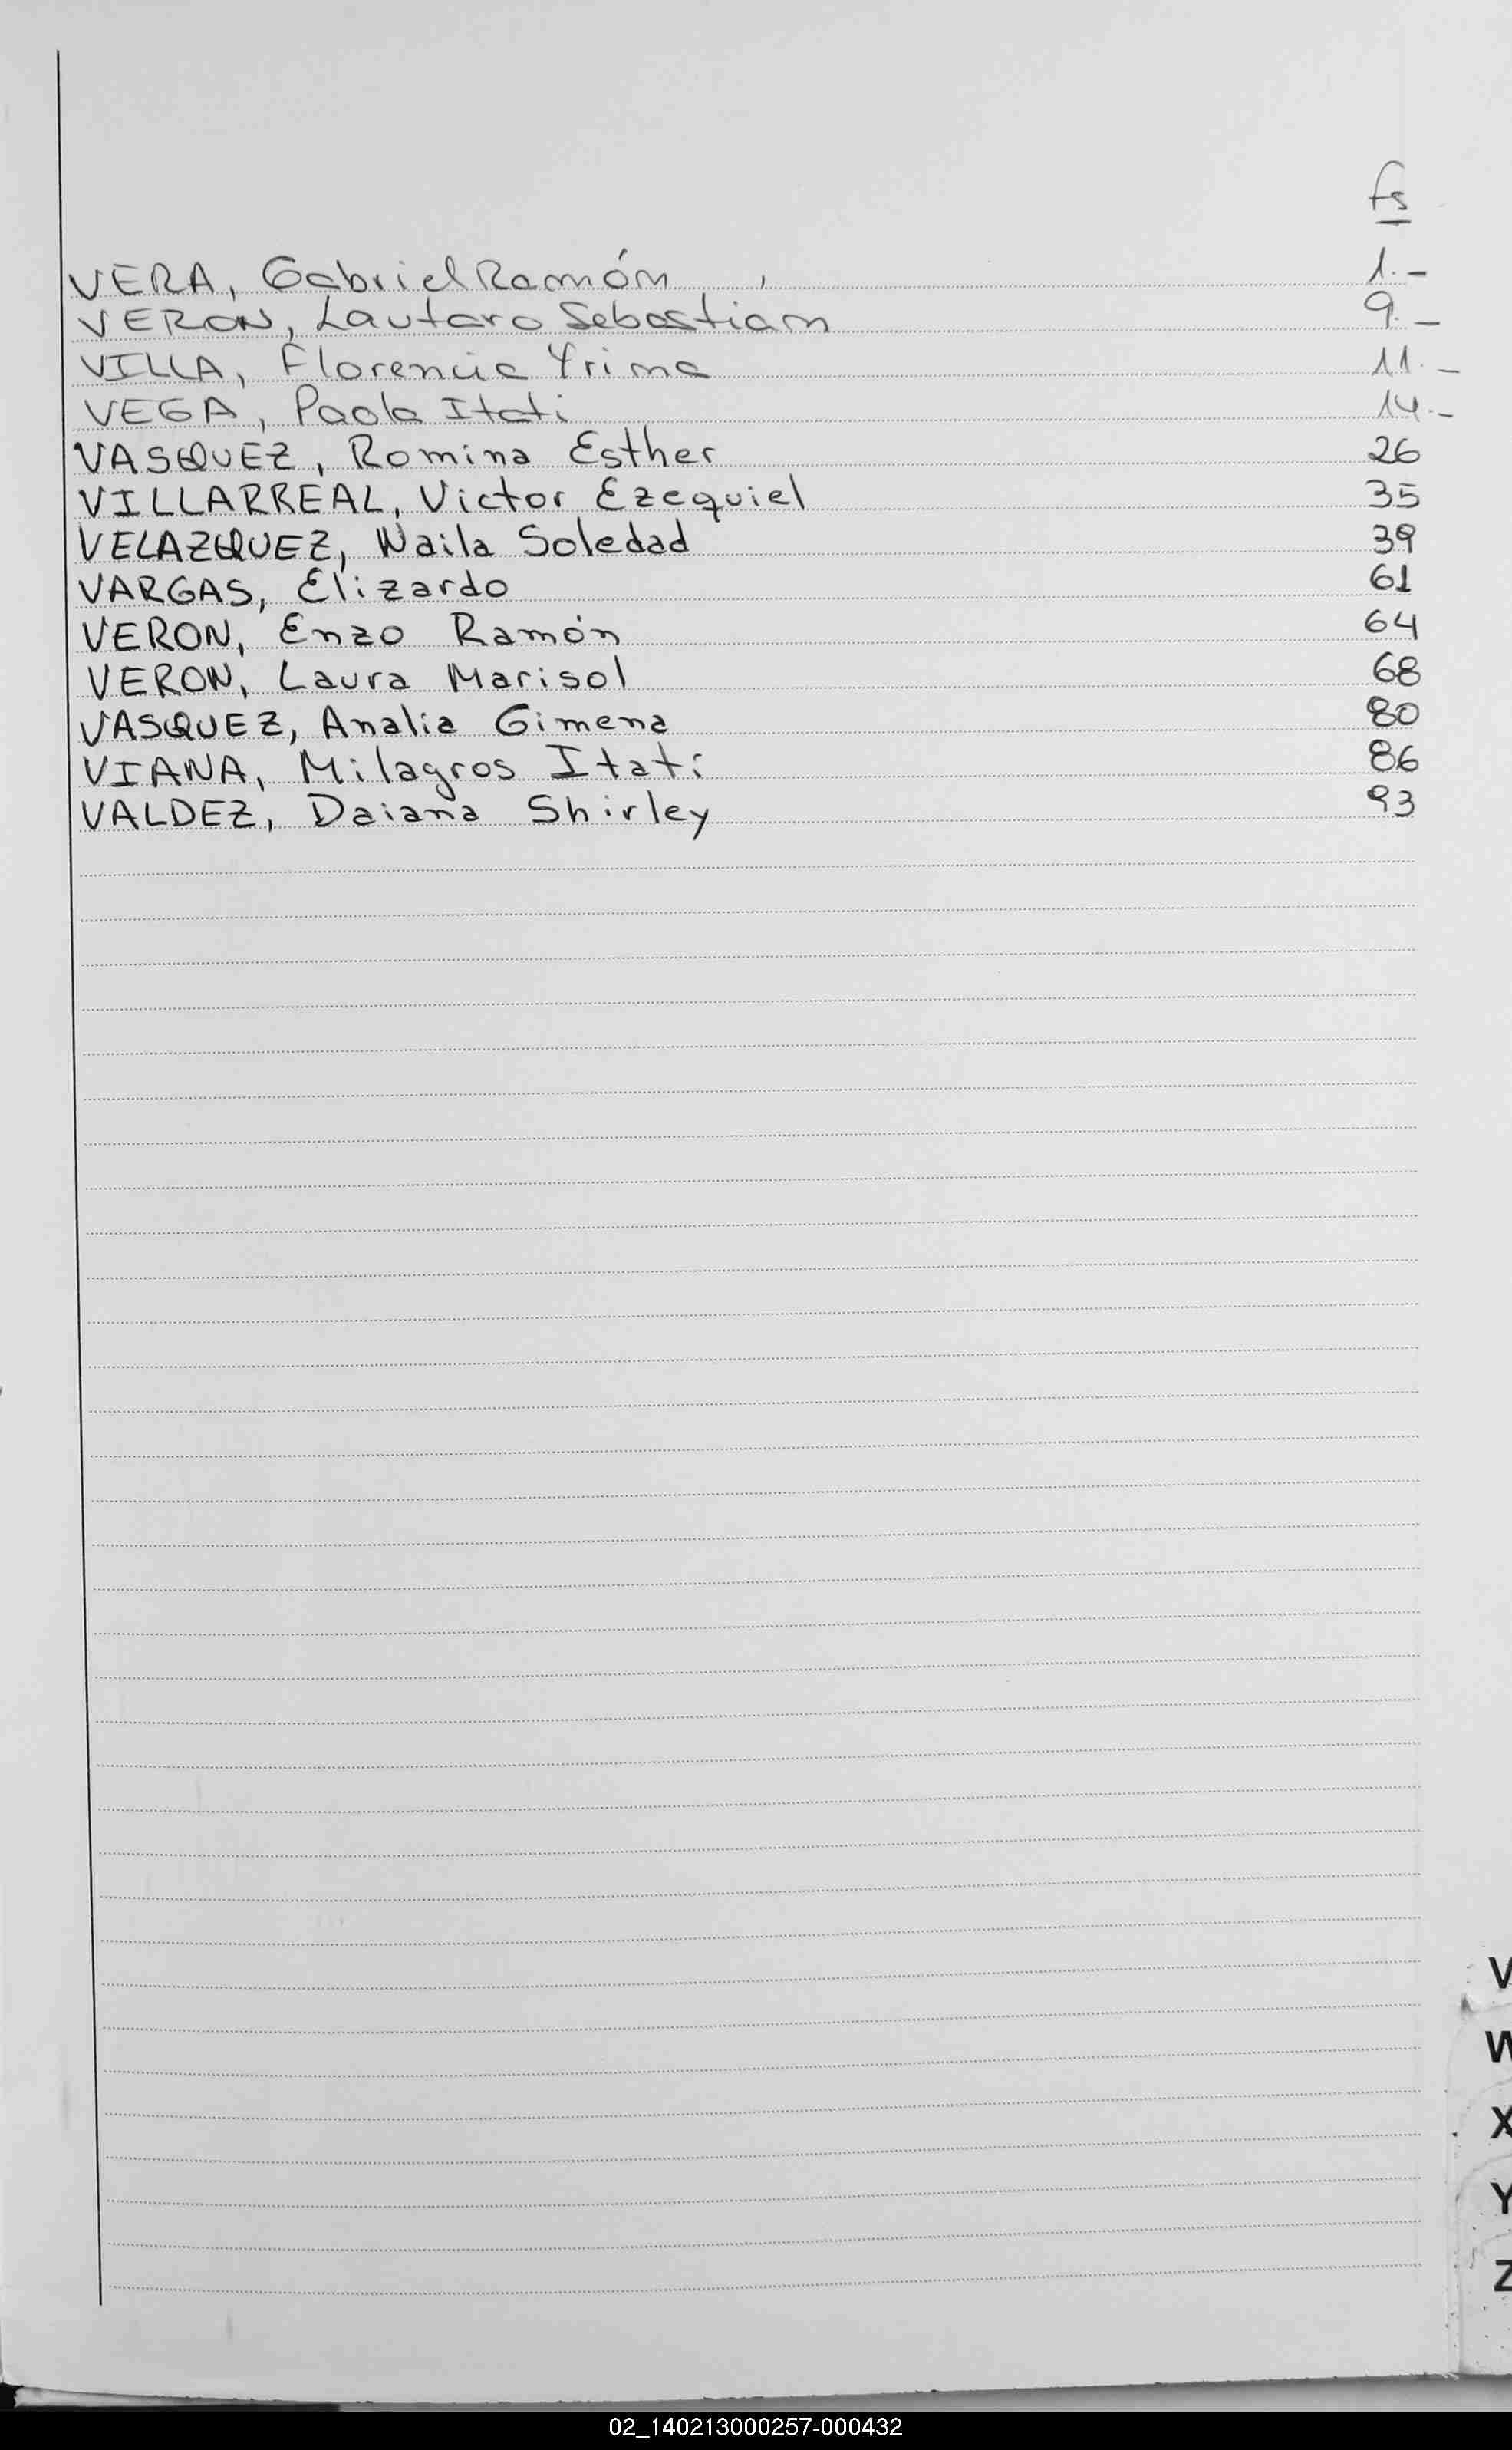 fs
VERA, Gabriel Ramón 1.-
VERON, Lautaro Sebastián 9.-
VILLA, Florencia Yrina 11.-
VEGA, Paola Itati 14.-
VASQUEZ, Romina Esther 26
VILLARREAL, Victor Ezequiel 35
VELAZQUEZ, Naila Soledad 39
VARGAS, Elizardo 61
VERON, Enzo Ramón 64
VERON, Laura Marisol 68
VASQUEZ, Analia Gimena 80
VIANA, Milagros Itatí 86
VALDEZ, Daiana Shirley 93
V
W
X
Y
Z
02_140213000257-000432